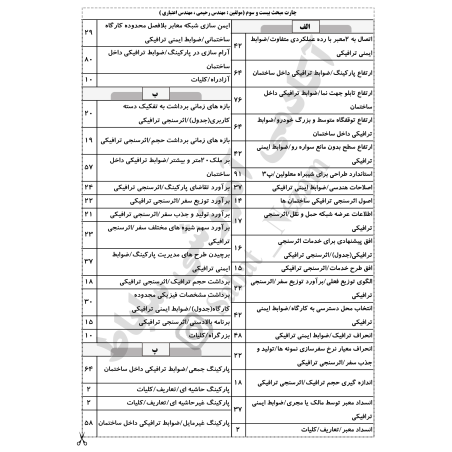 چارت مبحث بیست و سوم (مولفین : مهندس رحیمی ، مهندس اعتباری )
الف
اتصال به ۲معبر با رده عملکردی متفاوت/ضوابط
ایمنی ترافیکی
۴۲
ارتفاع پارکینگ/ضوابط ترافیکی داخل ساختمان
۶۴
ارتفاع تابلو جهت نما/ضوابط ترافیکی داخل
ساختمان
۷۶
ارتفاع توقفگاه متوسط و بزرگ خودرو/ضوابط
ترافیکی داخل ساختمان
۶۴
ارتفاع سطح بدون مانع سواره رو/ضوابط ایمنی
ترافیکی
۴۲
استاندارد طراحی برای شیبراه معلولین/پ۳
۹۱
اصلاحات هندسی/ضوابط ایمنی ترافیکی
۳۷
اصول اثرسنجی ترافیکی ساختمان ها
۱۴
اطلاعات عرضه شبکه حمل و نقل/اثرسنجی
ترافیکی
۱۷
افق پیشنهادی برای خدمات اثرسنجی
ترافیکی(جدول)/اثرسنجی ترافیکی
۱۶
افق طرح خدمات/اثرسنجی ترافیکی
۱۵
الگوی توزیع فعلی/برآورد توزیع سفر/اثرسنجی
ترافیکی
۲۲
انتخاب محل دسترسی به کارگاه/ضوابط ایمنی
ترافیکی
۴۲
انحراف ترافیک/ضوابط ایمنی ترافیکی
۴۸
انحراف معیار نرخ سفرسازی نمونه ها/تولید و
جذب سفر/اثرسنجی ترافیکی
۲۲
اندازه گیری حجم ترافیک/اثرسنجی ترافیکی
۱۸
انسداد معبر توسط مالک یا مجری/ضوابط ایمنی
ترافیکی
۳۷
انسداد معبر/تعاریف/کلیات
۲
ایمن سازی شبکه معابر بلافصل محدوده کارگاه
ساختمانی/ضوابط ایمنی ترافیکی
۲۹
آرام سازی در پارکینگ/ضوابط ترافیکی داخل
ساختمان
۸۰
آزادراه/کلیات
۱۰
ب
بازه های زمانی برداشت به تفکیک دسته
کاربری(جدول)/اثرسنجی ترافیکی
۲۰
بازه های زمانی برداشت حجم/اثرسنجی ترافیکی
۱۹
بر ملک ۲۰متر و بیشتر/ضوابط ترافیکی داخل
ساختمان
۵۷
برآورد تقاضای پارکینگ/اثرسنجی ترافیکی
۲۴
برآورد توزیع سفر/اثرسنجی ترافیکی
۲۲
برآورد تولید و جذب سفر/اثرسنجی ترافیکی
۲۱
برآورد سهم شیوه های مختلف سفر/اثرسنجی
ترافیکی
۲۳
برچیدن طرح های مدیریت پارکینگ/ضوابط
ایمنی ترافیکی
۳۷
برداشت حجم ترافیک/اثرسنجی ترافیکی
۱۸
برداشت مشخصات فیزیکی محدوده
کارگاه(جدول)/ضوابط ایمنی ترافیکی
۳۰
برنامه بالادستی/اثرسنجی ترافیکی
۱۵
بزرگراه/کلیات
۱۰
پ
پارکینگ جمعی/ضوابط ترافیکی داخل ساختمان
۶۴
پارکینگ حاشیه ای/تعاریف/کلیات
۲
پارکینگ غیرحاشیه ای/تعاریف/کلیات
۲
پارکینگ غیرمایل/ضوابط ترافیکی داخل ساختمان
۵۸